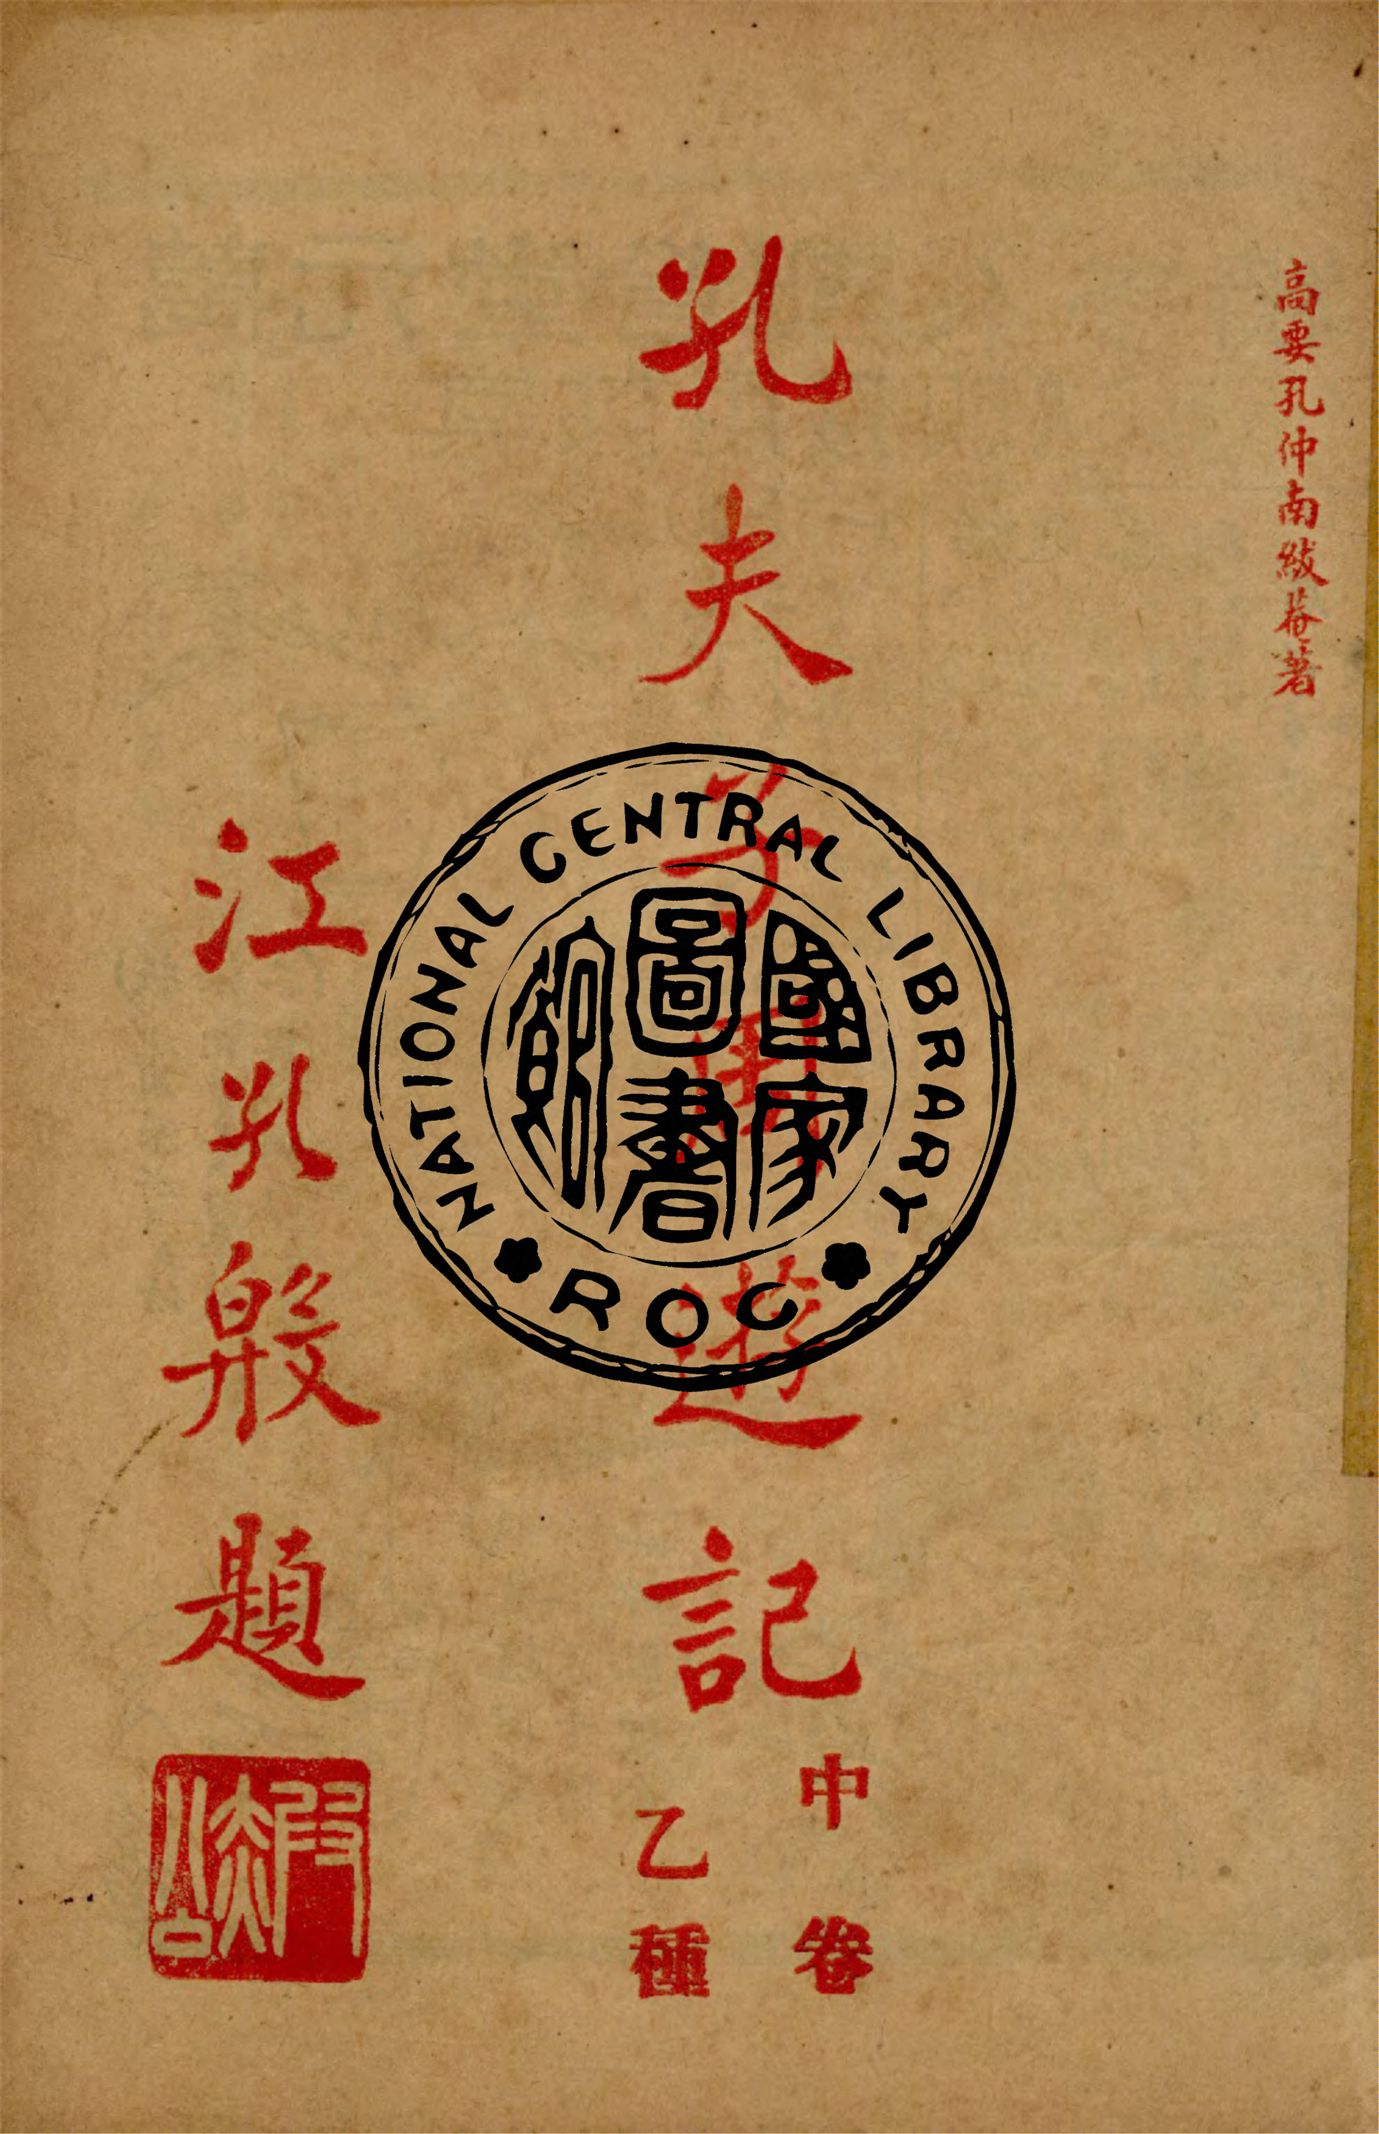 高要孔仲南紱菴著
孔夫子周遊記
中卷
乙種
江孔殷題
NATIONAL CENTRAL LIBRARY
國家
圖書
館
ROC